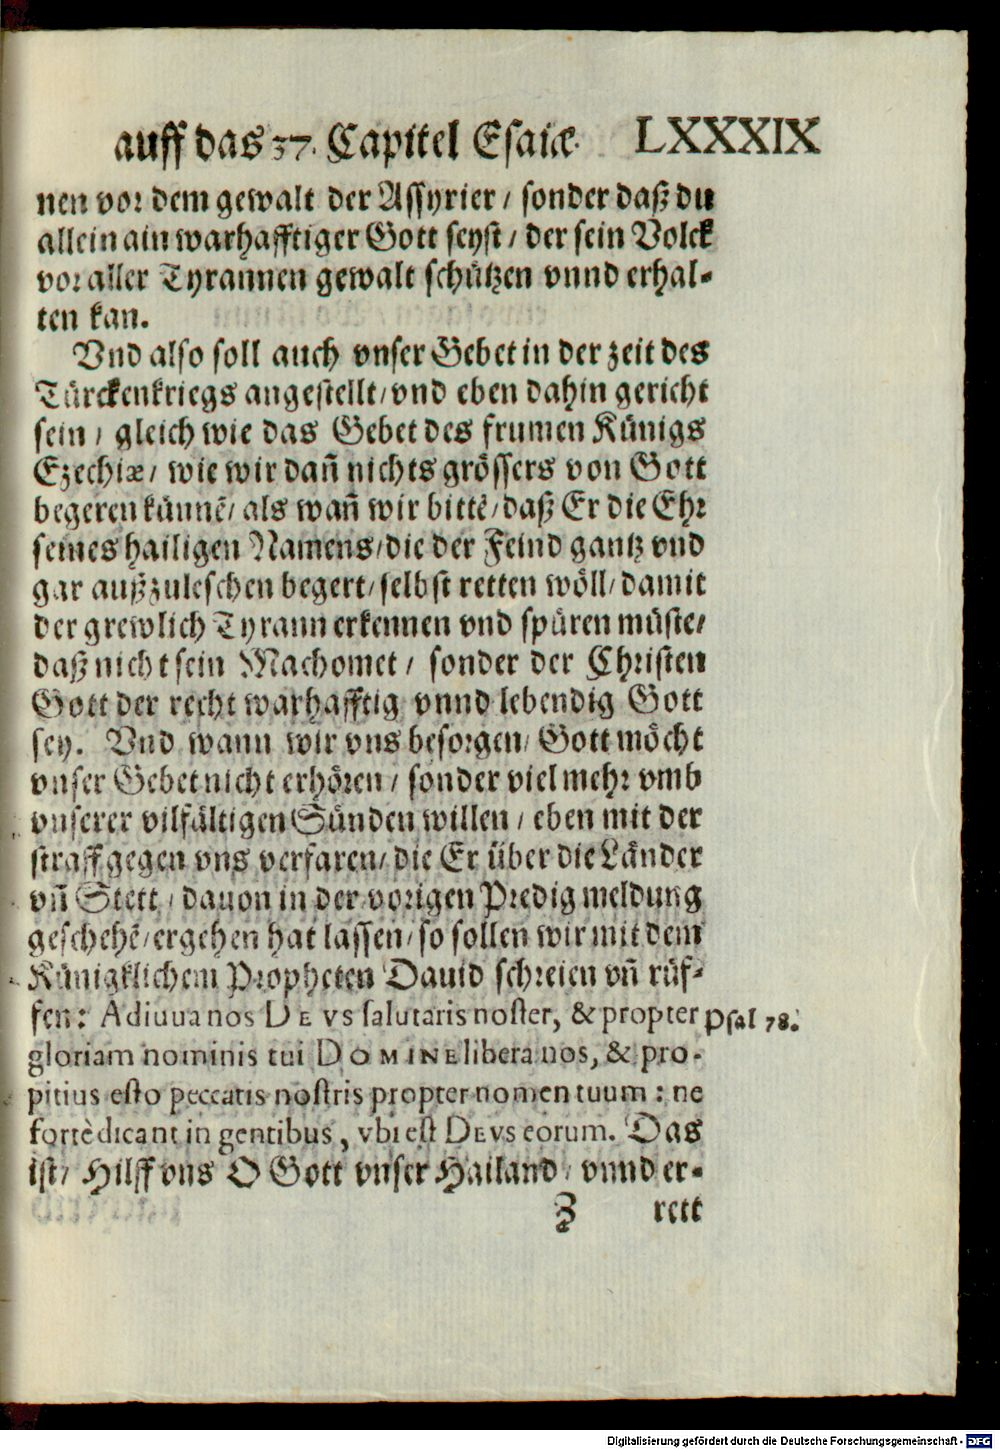 auff das 37. Capitel Esaiæ. LXXXIX
nen vor dem gewalt der Assyrier / sonder daß du
allein ain warhafftiger Gott seyst / der sein Volck
vor aller Tyrannen gewalt schützen vnnd erhal-
ten kan.
Vnd also soll auch vnser Gebet in der zeit des
Türckenkriegs angestellt / vnd eben dahin gericht
sein / gleich wie das Gebet des frumen Künigs
Ezechiæ / wie wir dañ nichts grössers von Gott
begeren künnẽ / als wañ wir bittẽ / daß Er die Ehr
seines hailigen Namens / die der Feind gantz vnd
gar außzuleschen begert / selbst retten wöll / damit
der grewlich Tyrann erkennen vnd spüren müste /
daß nicht sein Machomet / sonder der Christen
Gott der recht warhafftig vnnd lebendig Gott
sey. Vnd wann wir vns besorgen / Gott möcht
vnser Gebet nicht erhören / sonder viel mehr vmb
vnserer vilfältigen Sünden willen / eben mit der
straff gegen vns verfaren / die Er über die Länder
vñ Stett / dauon in der vorigen Predig meldung
geschehẽ / ergehen hat lassen / so sollen wir mit dem
Künigklichem Propheten Dauid schreien vñ rüf-
fen: Adiuua nos DEVS salutaris noster, & propter Psal 78.
gloriam nominis tui DOMINE libera nos, & pro-
pitius esto peccatis nostris propter nomen tuum: ne
fortè dicant in gentibus, vbi est DEVS eorum. Das
ist / Hilff vns O Gott vnser Hailand / vnnd er-
Z rett
Digitalisierung gefördert durch die Deutsche Forschungsgemeinschaft - DFG